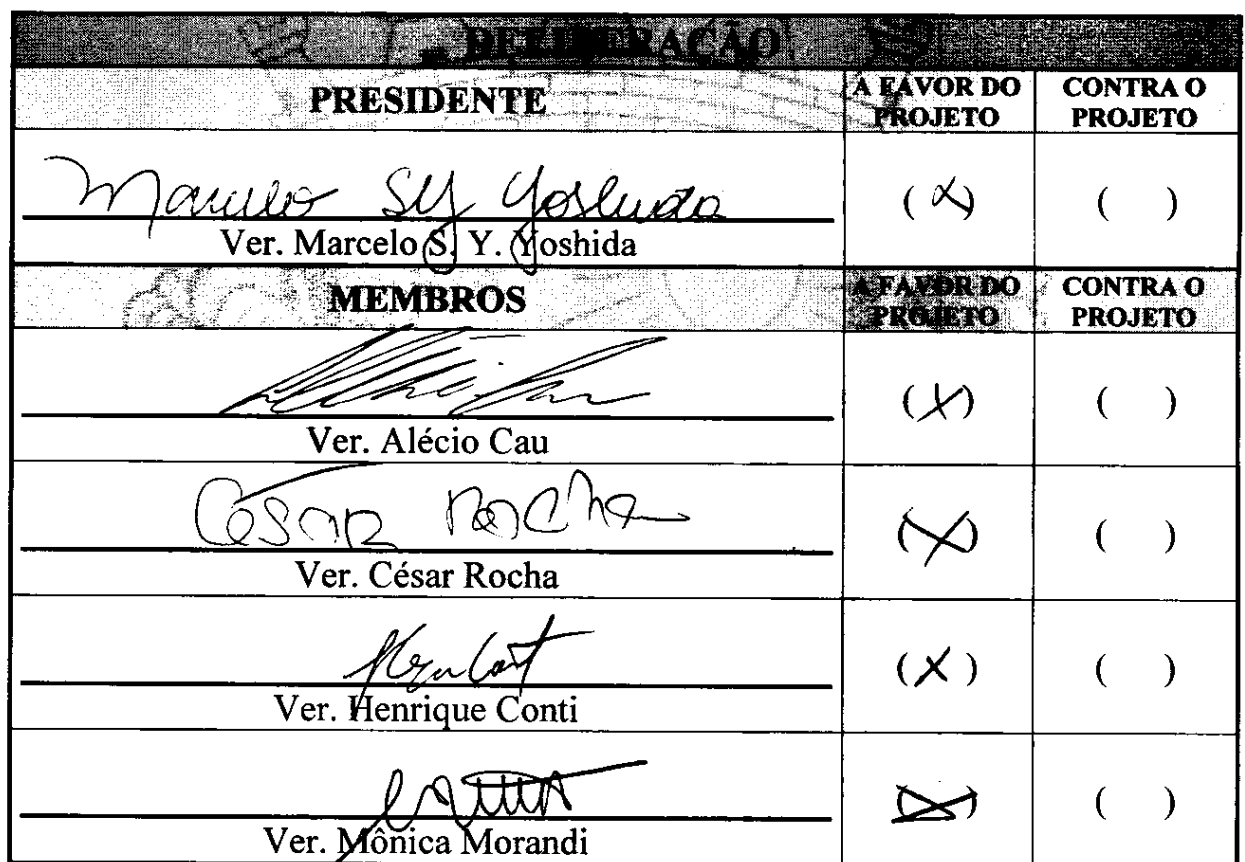 DELIBERAÇÃO
PRESIDENTE
A FAVOR DO
PROJETO
CONTRA O
PROJETO
Marcelo SY Yoshida
(X)
( )
Ver. Marcelo S. Y. Yoshida
MEMBROS
A FAVOR DO
PROJETO
CONTRA O
PROJETO
(X)
( )
Ver. Alécio Cau
César Rocha
(X)
( )
Ver. César Rocha
(X)
( )
Ver. Henrique Conti
(X)
( )
Ver. Mônica Morandi